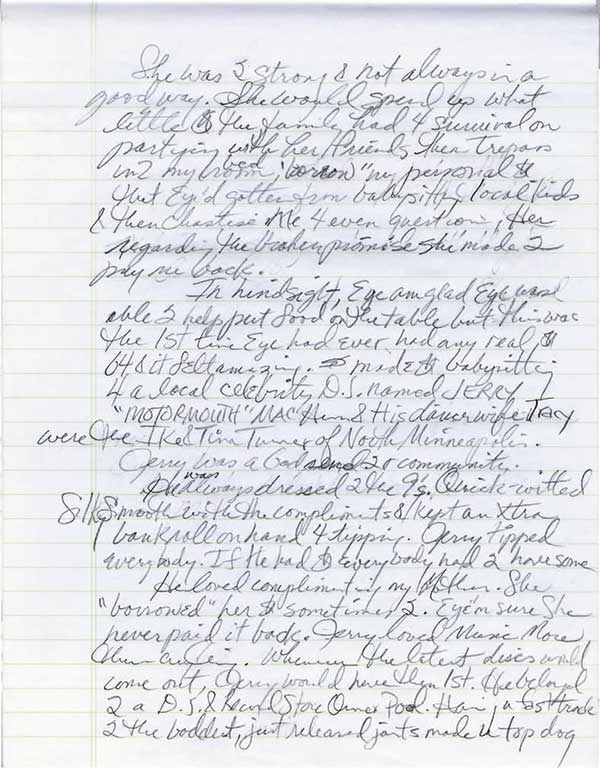 She was 2 strong & not always in a
good way. She would spend up what
little $ the family had 4 survival on
partying with her friends then trespass
in2 my bedroom, "borrow" my personal $
that Eye'd gotten from babysitting local kids
& then chastise Me 4 even questioning Her
regarding the broken promise she made 2
pay me back.
In hindsight, Eye am glad Eye was
able 2 help put food on the table but this was
the 1st time Eye had ever had any real $
& it felt amazing. made $ babysitting
4 a local celebrity D.J. named JERRY
"MOTORMOUTH" MAC Him & His dancer wife TRACY
were the Ike & Tina Turner of North Minneapolis.
Jerry was a Godsend 2 community.
He was always dressed 2 the 9's. Quick-witted
Silk Smooth with the compliments & kept an Xtra
bankroll on hand 4 tipping. Jerry tipped
everybody. If He had $ everybody had 2 have some
He loved complimenting my Mother. She
"borrowed" her $ sometimes 2. Eye'm sure She
never paid it back. Jerry loved Music More
than anything. Whenever the latest discs would
come out, Jerry would have them 1st. He belonged
2 a D.J. & Record Store Owner Pool. Having
2 the baddest, just released jams made U top dog